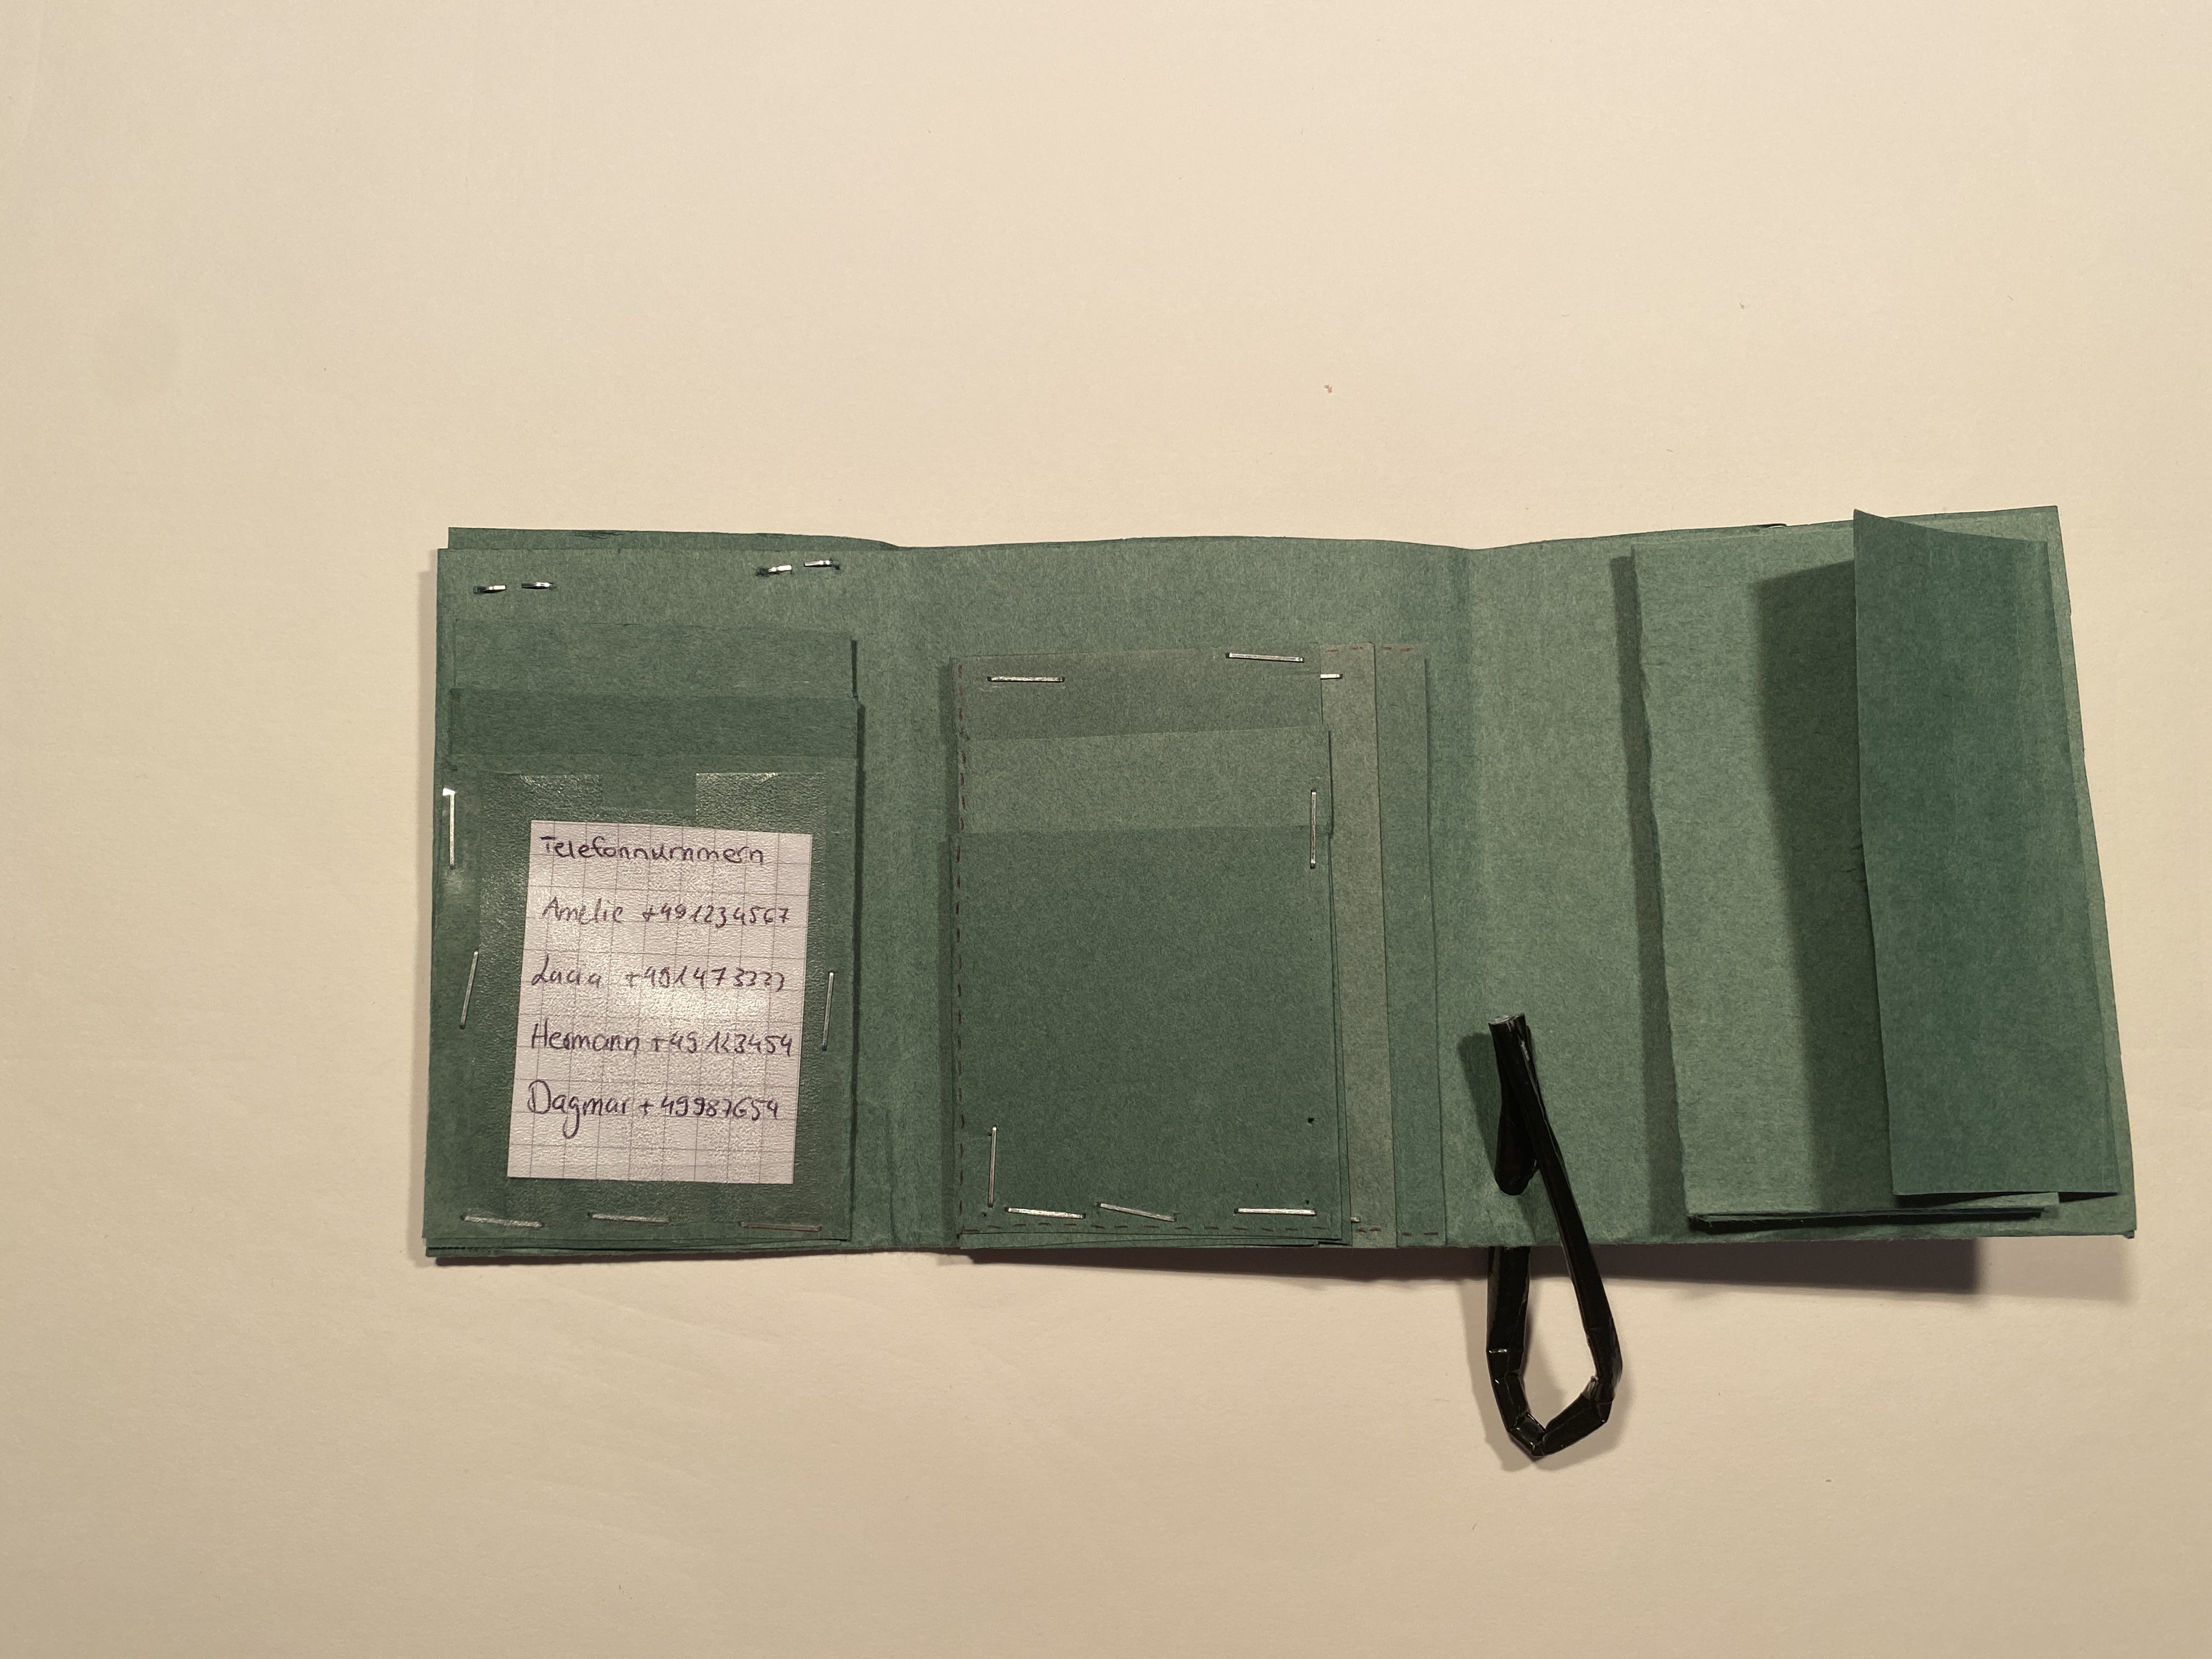 Telefonnummern
Amelie +491234567
Lucia
Hermann +49123454
Dagmar +49987654